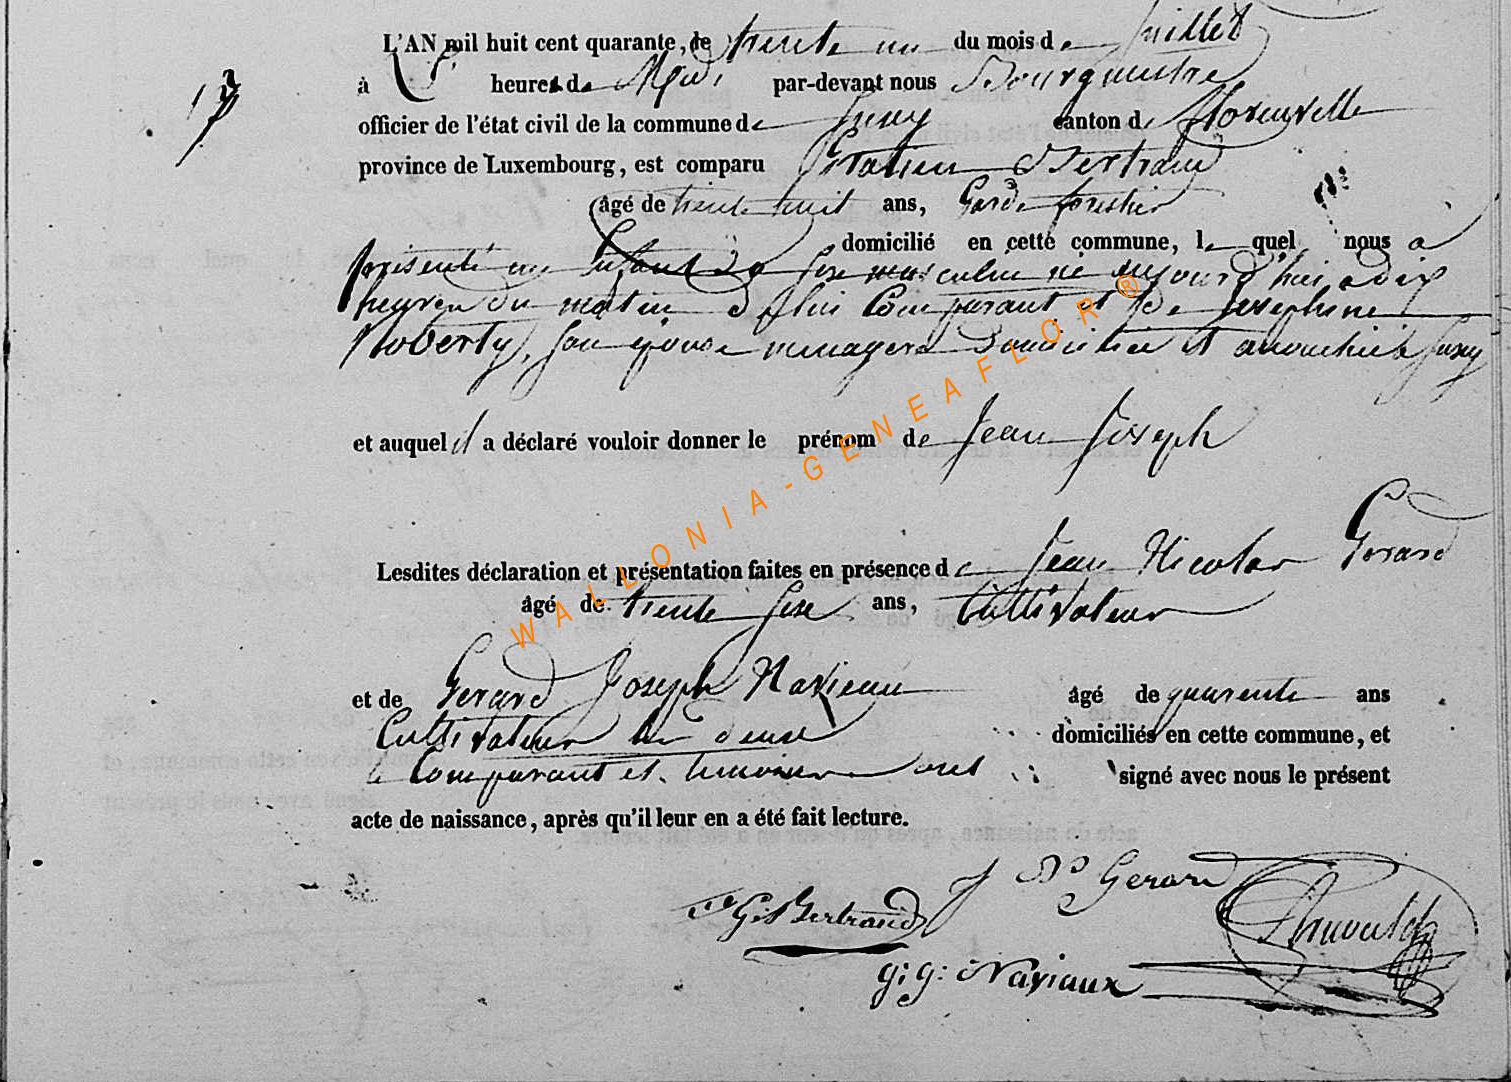 L'AN mil huit cent quarante, le trente un du mois de Juillet
17
à heures de Midi par-devant nous Bourgmestre
officier de l'état civil de la commune de Izel canton de Florenville
province de Luxembourg, est comparu Gratien Bertrand
âgé de trente huit ans, Garde forestier
domicilié en cette commune, lequel nous a
présenté un Enfant de sexe masculin né aujourd'hui a dix
heures du matin de lui Comparant et de Josephine
son épouse menagere domiciliée et
et auquel il a déclaré vouloir donner le prénom de Jean Joseph
Lesdites déclaration et présentation faites en présence de Jean Nicolas Gerard
âgé de trente sixe ans, Cultivateur
et de Gerard Joseph Navieau âgé de quarente ans
Cultivateur domiciliés en cette commune, et
le Comparant et temoins ont signé avec nous le présent
acte de naissance, après qu'il leur en a été fait lecture.
J N Gerard
G. Bertrand
g: g: Naviaux
WALLONIA-GENEAFLOR ®